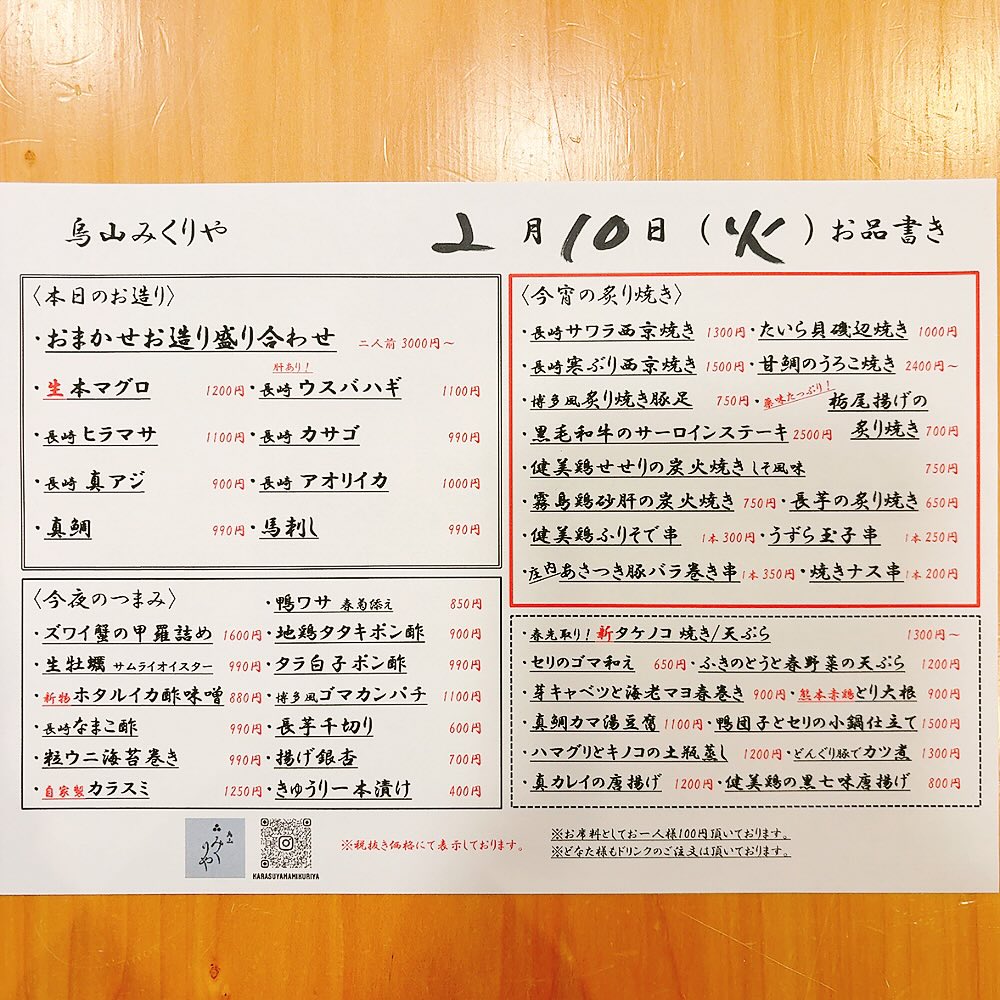 烏山みくりや 2月10日(火)お品書き
〈本日のお造り〉
・おまかせお造り盛り合わせ 二人前 3000円～
・生本マグロ 1200円
肝あり!
・長崎 ウスバハギ 1100円
・長崎 ヒラマサ 1100円
・長崎 カサゴ 990円
・長崎 真アジ 900円
・長崎 アオリイカ 1000円
・真鯛 990円
・馬刺し 990円
〈今夜のつまみ〉
・鴨ワサ 春菊添え 850円
・ズワイ蟹の甲羅詰め 1600円
・地鶏タタキポン酢 900円
・生牡蠣 サムライオイスター 990円
・タラ白子ポン酢 990円
・新物ホタルイカ酢味噌 880円
・博多風ゴマカンパチ 1100円
・長崎なまこ酢 990円
・長芋千切り 600円
・粒ウニ海苔巻き 990円
・揚げ銀杏 700円
・自家製カラスミ 1250円
・きゅうり一本漬け 400円
〈今宵の炙り焼き〉
・長崎サワラ西京焼き 1300円
・たいら貝磯辺焼き 1000円
・長崎寒ぶり西京焼き 1500円
・甘鯛のうろこ焼き 2400円～
・博多風炙り焼き豚足 750円
・薬味たっぷり!栃尾揚げの
炙り焼き 700円
・黒毛和牛のサーロインステーキ 2500円
・健美鶏せせりの炭火焼き しそ風味 750円
・霧島鶏砂肝の炭火焼き 750円
・長芋の炙り焼き 650円
・健美鶏ふりそで串 1本300円
・うずら玉子串 1本250円
・庄内あさつき豚バラ巻き串 1本350円
・焼きナス串 1本200円
・春先取り!新タケノコ 焼き/天ぷら 1300円～
・セリのゴマ和え 650円
・ふきのとうと春野菜の天ぷら 1200円
・芽キャベツと海老マヨ春巻き 900円
・熊本赤鶏とり大根 900円
・真鯛カマ湯豆腐 1100円
・鴨団子とセリの小鍋仕立て 1500円
・ハマグリとキノコの土瓶蒸し 1200円
・どんぐり豚でカツ煮 1300円
・真カレイの唐揚げ 1200円
・健美鶏の黒七味唐揚げ 800円
烏山
みくりや
KARASUYAMAMIKURIYA
※税抜き価格にて表示しております。
※お席料としてお一人様100円頂いております。
※どなた様もドリンクのご注文は頂いております。